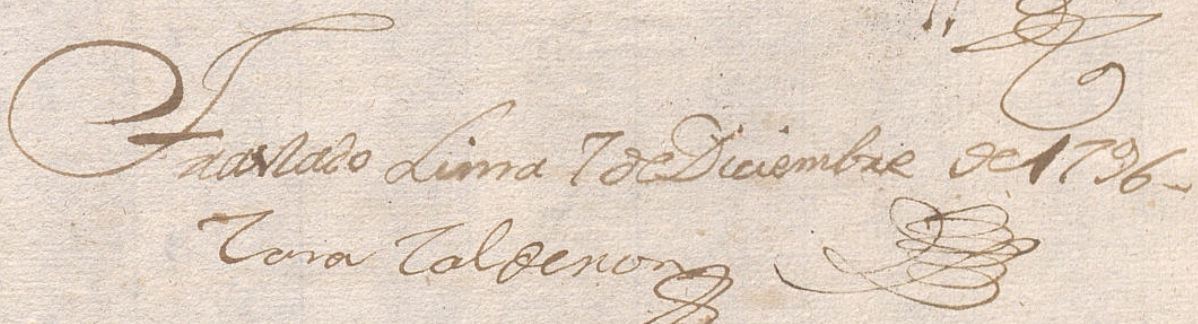 Traslado Lima 7 de Diciembre de 1796
Calderon